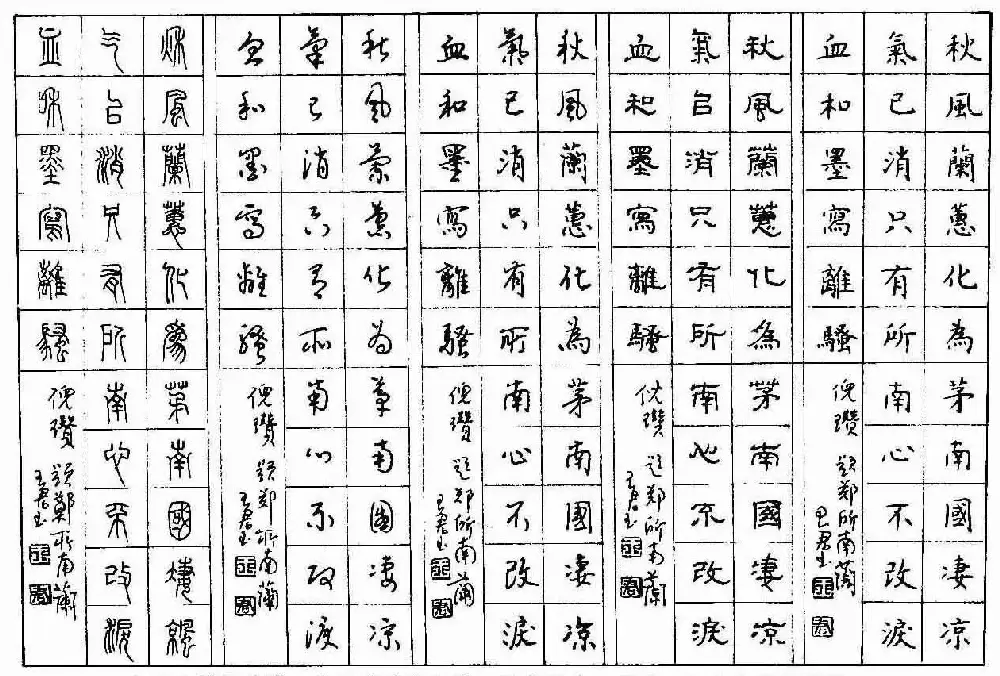 秋風蘭蕙化為茅南國凄凉
氣已消只有所南心不改淚
血和墨寫離騷
倪瓚
题郑所南蘭
秋風蘭蕙化為茅南國凄凉
氣已消只有所南心不改淚
血和墨寫離騷
倪瓚
题郑所南蘭
秋風蘭蕙化為茅南國凄凉
氣已消只有所南心不改淚
血和墨寫離騷
倪瓚
题郑所南蘭
秋風蘭蕙化為茅南國凄凉
氣已消只有所南心不改淚
血和墨寫離騷
倪瓚
题郑所南蘭
秋風蘭蕙化為茅南國凄凉
氣已消只有所南心不改淚
血和墨寫離騷
倪瓚
题鄭所南蘭